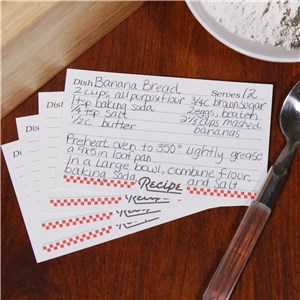 Dish Banana Bread Serves 12
2 cups all purpose flour 3/4c brown sugar
1 tsp baking soda 2 eggs, beaten
1/4 tsp salt 2 1/3 cups mashed
1/2 c butter bananas
Preheat oven to 350° lightly grease
a 9x5 in loaf pan.
In a large bowl, combine flour,
baking soda, and salt
Recipe
Dis
Dis
Dis
Recipe
Recipe
Recipe